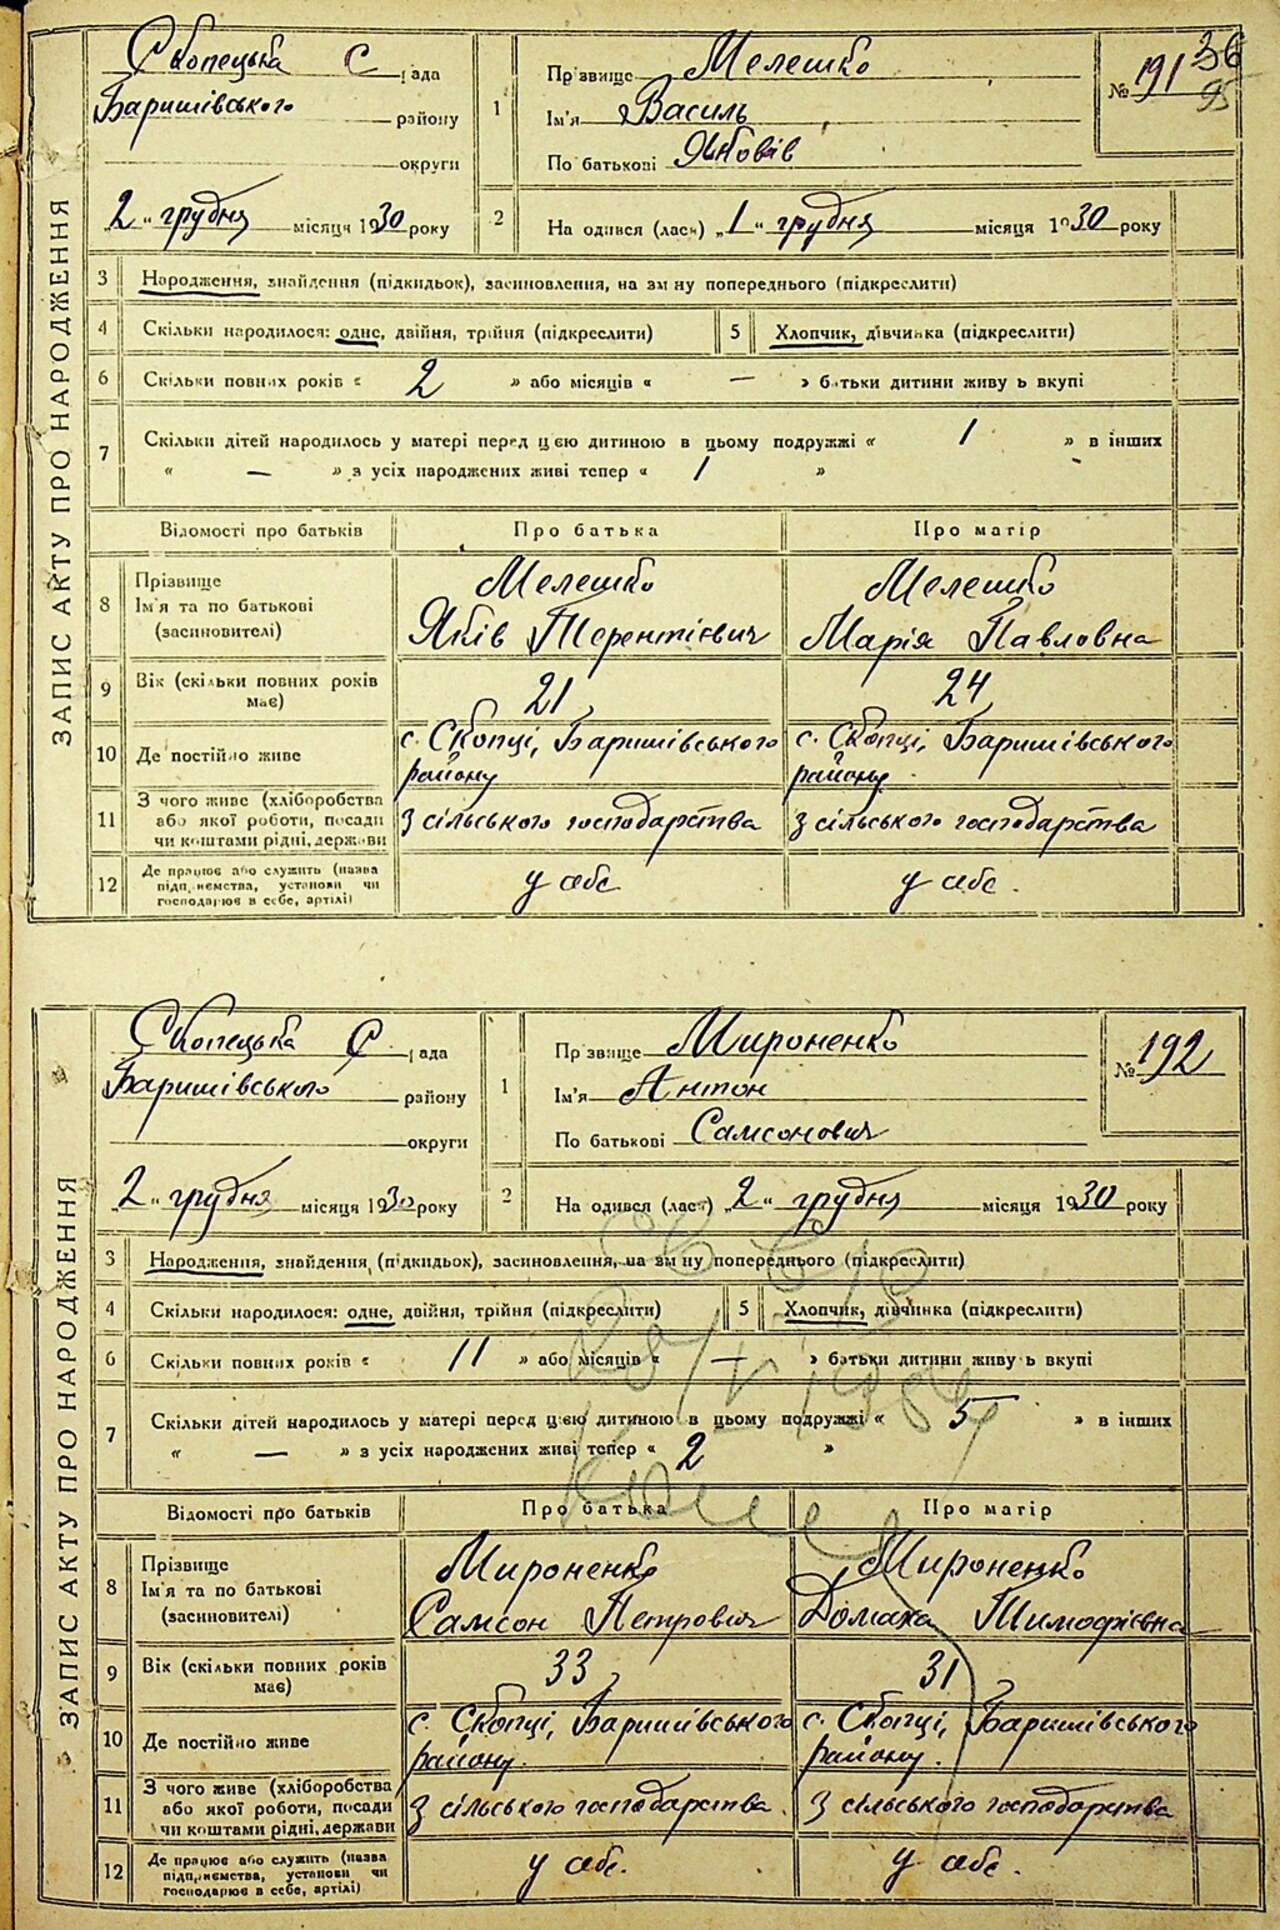 ЗАПИС АКТУ ПРО НАРОДЖЕННЯ
Скопецька С рада
Баришівського району
округи
2 " грудня місяця 1930 року
1 Прізвище Мелешко
Ім'я Василь
По батькові Яковів
№ 191
36
95
2 На одився (лася) „1 " грудня місяця 1930 року
3 Народження, знайдення (підкидьок), засиновлення, на зм ну попереднього (підкреслити)
4 Скільки народилося: одне, двійня, трійня (підкреслити) 5 Хлопчик, дівчинка (підкреслити)
6 Скільки повних років « 2 » або місяців « — » батьки дитини живу ь вкупі
7 Скільки дітей народилось у матері перед цією дитиною в цьому подружжі « 1 » в інших
« — » з усіх народжених живі тепер « 1 »
Відомості про батьків Про батька Про матір
8 Прізвище Ім'я та по батькові (засиновителі)
Мелешко Яків Терентієвич
Мелешко Марія Павловна
9 Вік (скільки повних років має) 21 24
10 Де постійно живе
с. Скопці, Баришівського району
с. Скопці, Баришівського району
11 З чого живе (хліборобства або якої роботи, посади чи коштами рідні, держави
З сільського господарства З сільського господарства
12 Де працює або служить (назва підприємства, установи чи господарює в себе, артілі)
у себе у себе.
ЗАПИС АКТУ ПРО НАРОДЖЕННЯ
Скопецька С рада
Баришівського району
округи
2 " грудня місяця 1930 року
1 Прізвище Мироненко
Ім'я Антон
По батькові Самсонович
№ 192
2 На одився (лася) „2 " грудня місяця 1930 року
3 Народження, знайдення (підкидьок), засиновлення, на зм ну попереднього (підкреслити)
4 Скільки народилося: одне, двійня, трійня (підкреслити) 5 Хлопчик, дівчинка (підкреслити)
6 Скільки повних років « 11 » або місяців « — » батьки дитини живу ь вкупі
7 Скільки дітей народилось у матері перед цією дитиною в цьому подружжі « 5 » в інших
« — » з усіх народжених живі тепер « 2 »
Відомості про батьків Про батька Про матір
8 Прізвище Ім'я та по батькові (засиновителі)
Мироненко Самсон Петрович
Мироненко Домаха Тимофієвна
9 Вік (скільки повних років має) 33 31
10 Де постійно живе
с. Скопці, Баришівського району.
с. Скопці, Баришівського району.
11 З чого живе (хліборобства або якої роботи, посади чи коштами рідні, держави
З сільського господарства. З сільського господарства
12 Де працює або служить (назва підприємства, установи чи господарює в себе, артілі)
у себе. у себе.